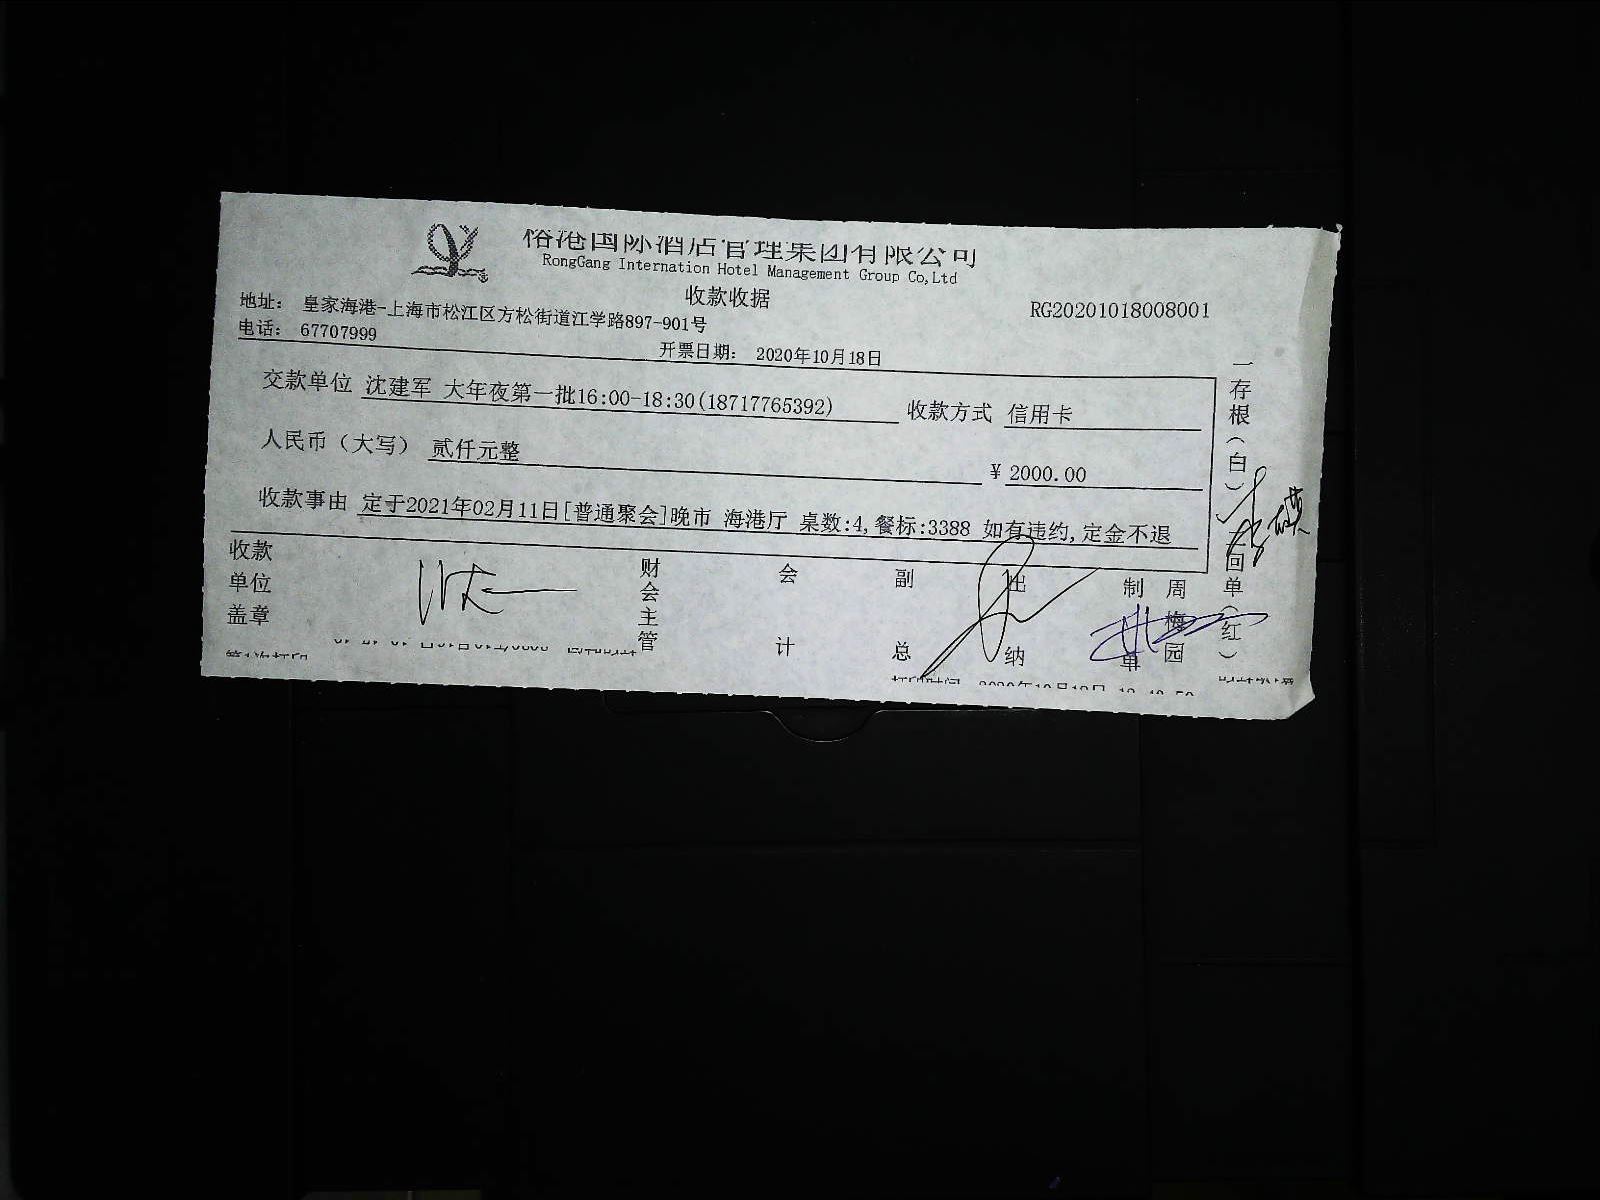 港国际酒店管理集团有限公司
RongGang Internation Hotel Management Group Co,Ltd
收款收据
RG20201018008001
地址： 皇家海港-上海市松江区方松街道江学路897-901号
电话： 67707999
开票日期： 2020年10月18日
交款单位 沈建军 大年夜第一批16:00-18:30(18717765392) 收款方式 信用卡
人民币（大写） 贰仟元整 ¥2000.00
收款事由 定于2021年02月11日[普通聚会]晚市 海港厅 桌数:4,餐标:3388 如有违约,定金不退
收款单位盖章
财会主管
会计
副总
出纳
制单
周梅园
一存根（白）
二回单（红）